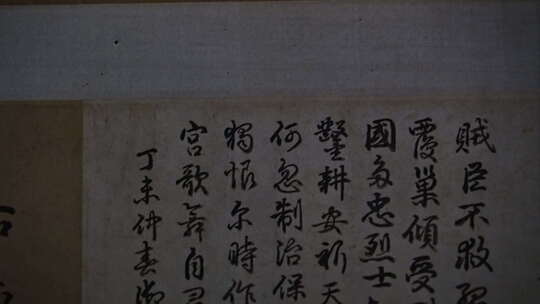 賊臣不救
覆巢傾受
國多忠烈士
鑿耕安祈天
何忽制治保
獨恨尔時作
宮歌舞自
丁未仲春御